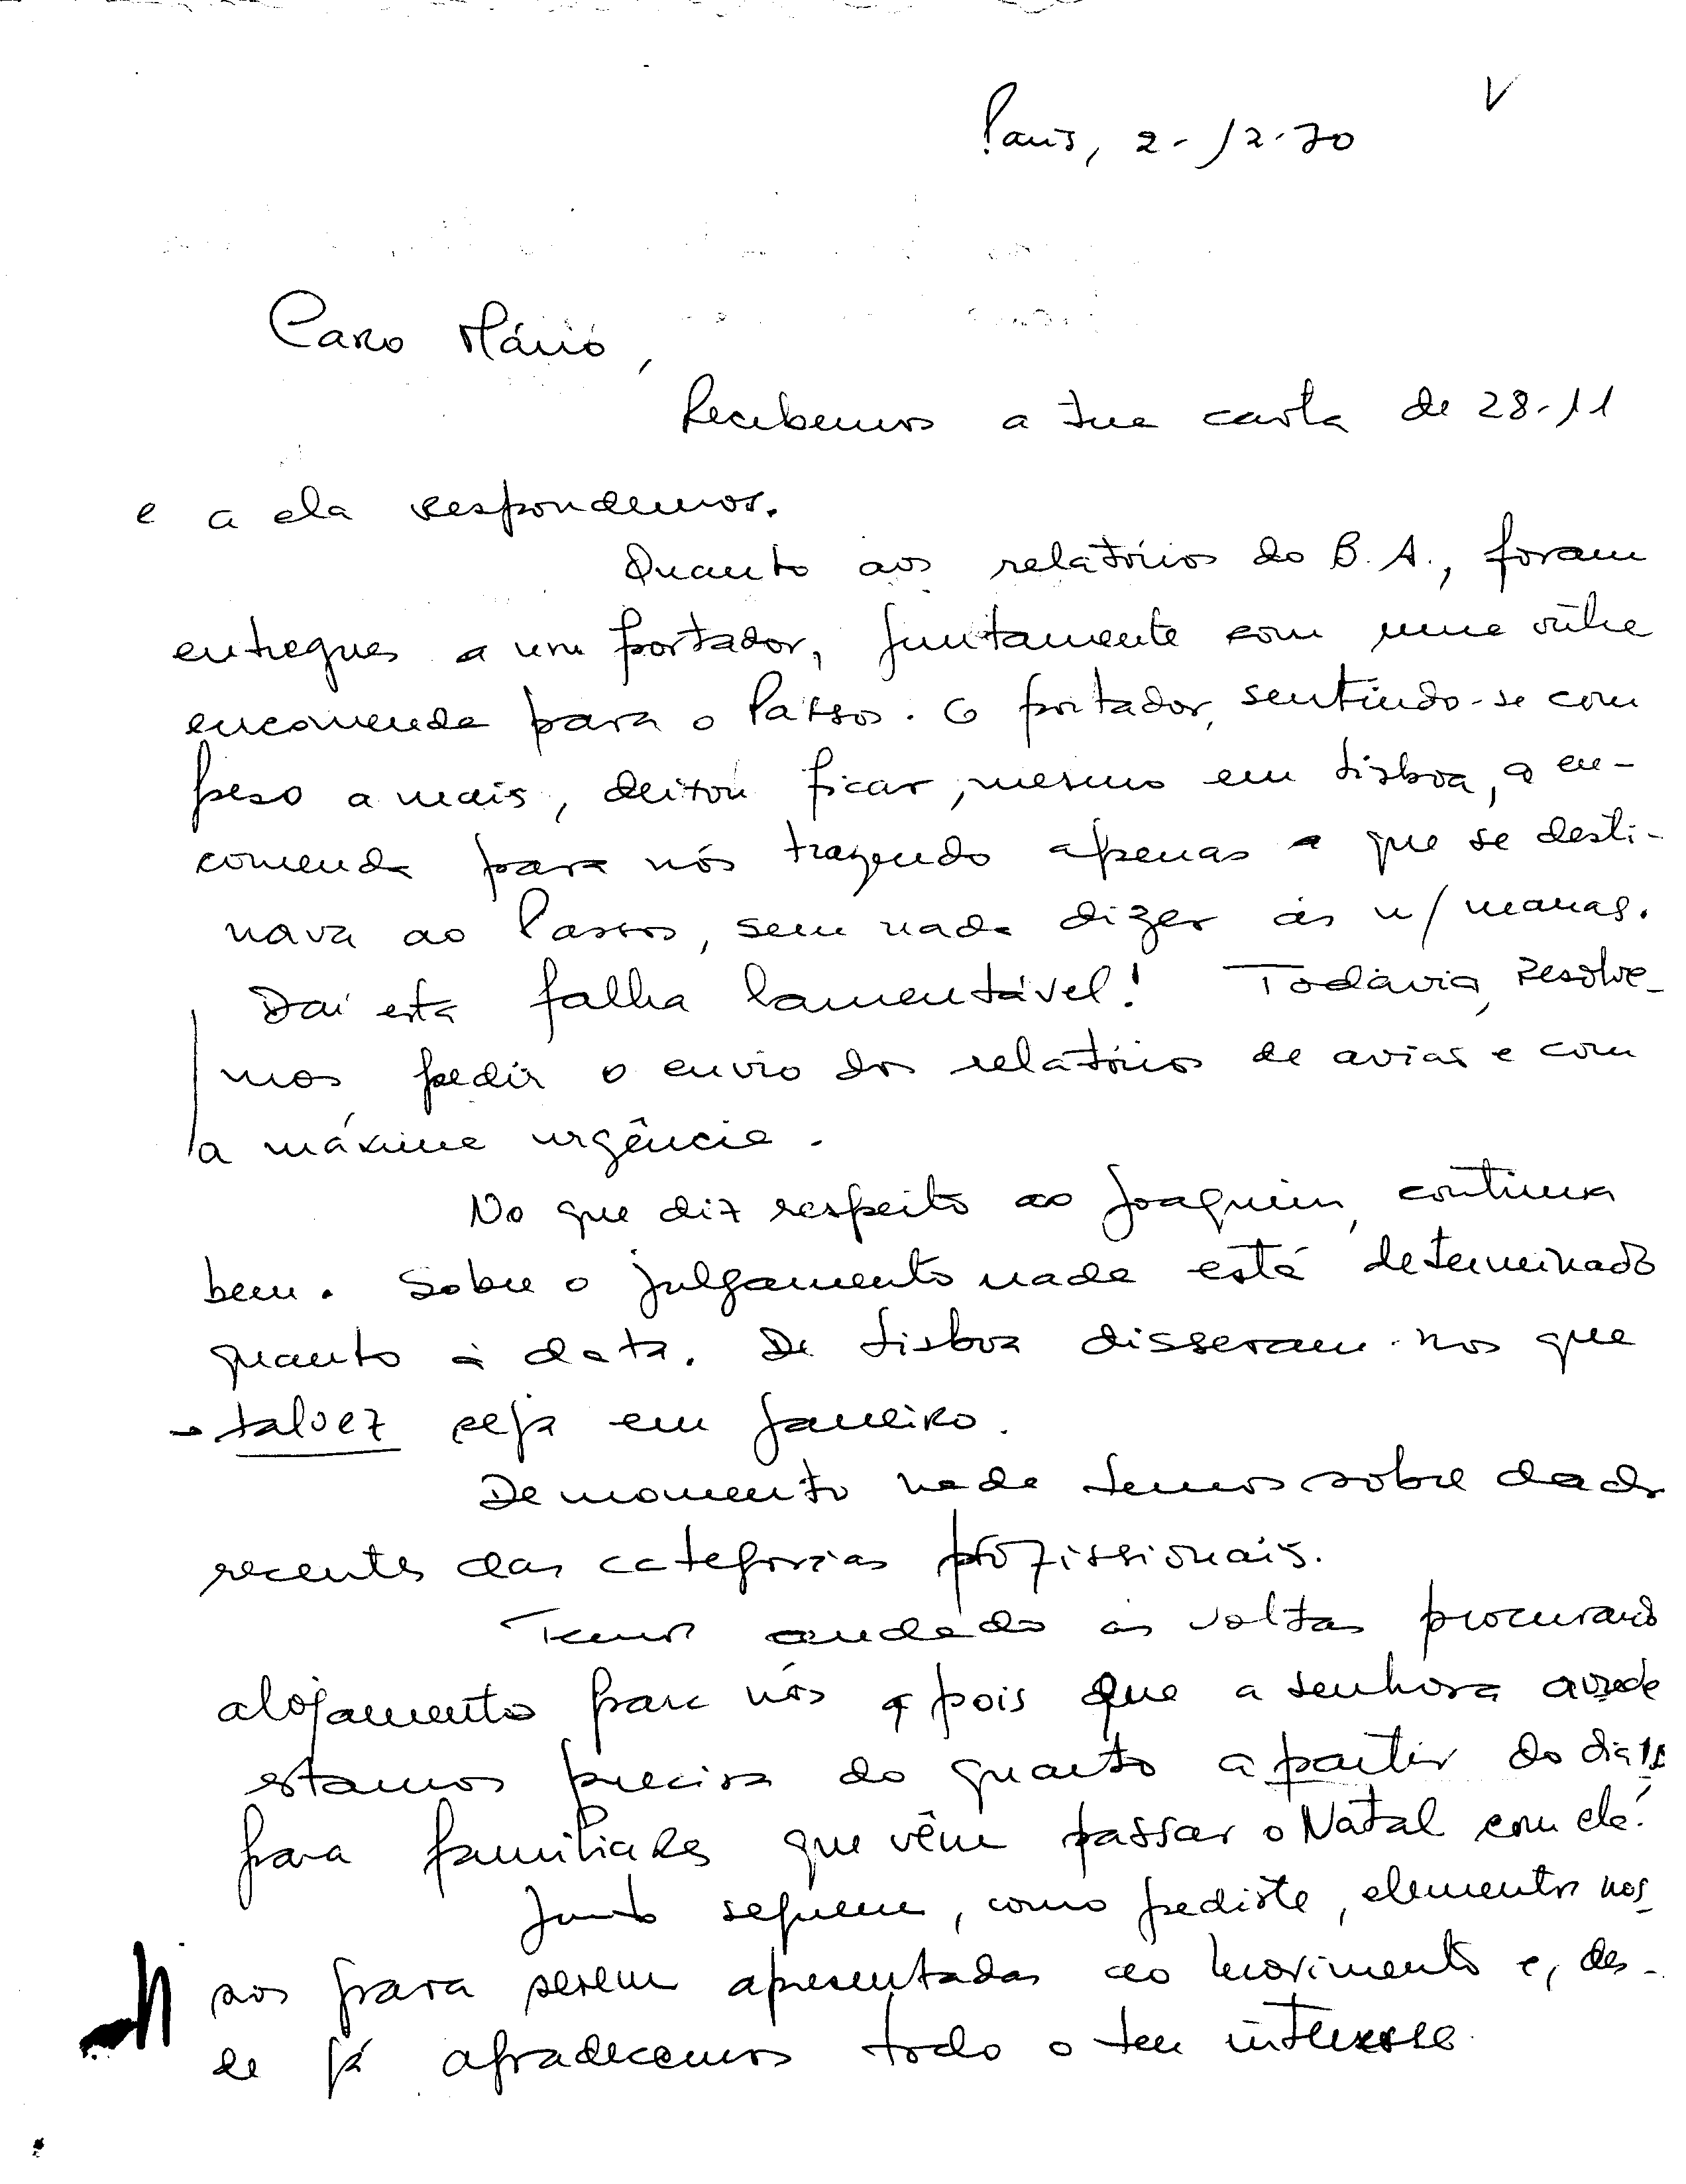 V
Paris, 2-12-70
Caro Mário,
Recebemos a tua carta de 28-11
e a ela respondemos.
Quanto aos relatórios do B. A., foram
entregues a um portador, juntamente com uma outra
encomenda para o Passos. O portador, sentindo-se com
peso a mais, deixou ficar, mesmo em Lisboa, a en-
comenda para nós trazendo apenas a que se desti-
nava ao Passos, sem nada dizer às n/ manas.
Daí esta falha lamentável! Todavia, resolve-
mos pedir o envio dos relatórios de avião e com
a máxima urgência.
No que diz respeito ao Joaquim, continua
bem. Sobre o julgamento nada está determinado
quanto à data. De Lisboa disseram-nos que
→ talvez seja em Janeiro.
De momento nada temos sobre dados
recentes das categorias profissionais.
Temos andado às voltas procurando
alojamento para nós pois que a senhora onde
estamos precisa do quarto a partir do dia 15
para familiares que vêm passar o Natal com ela!
Junto seguem, como pediste, elementos nos-
sos para serem apresentadas ao Movimento e, des-
de já agradecemos todo o teu interesse.